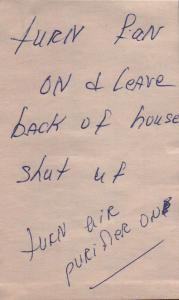 TURN FAN
ON & LEAVE
BACK OF HOUSE
SHUT UP
TURN AIR
PURIFIER ON